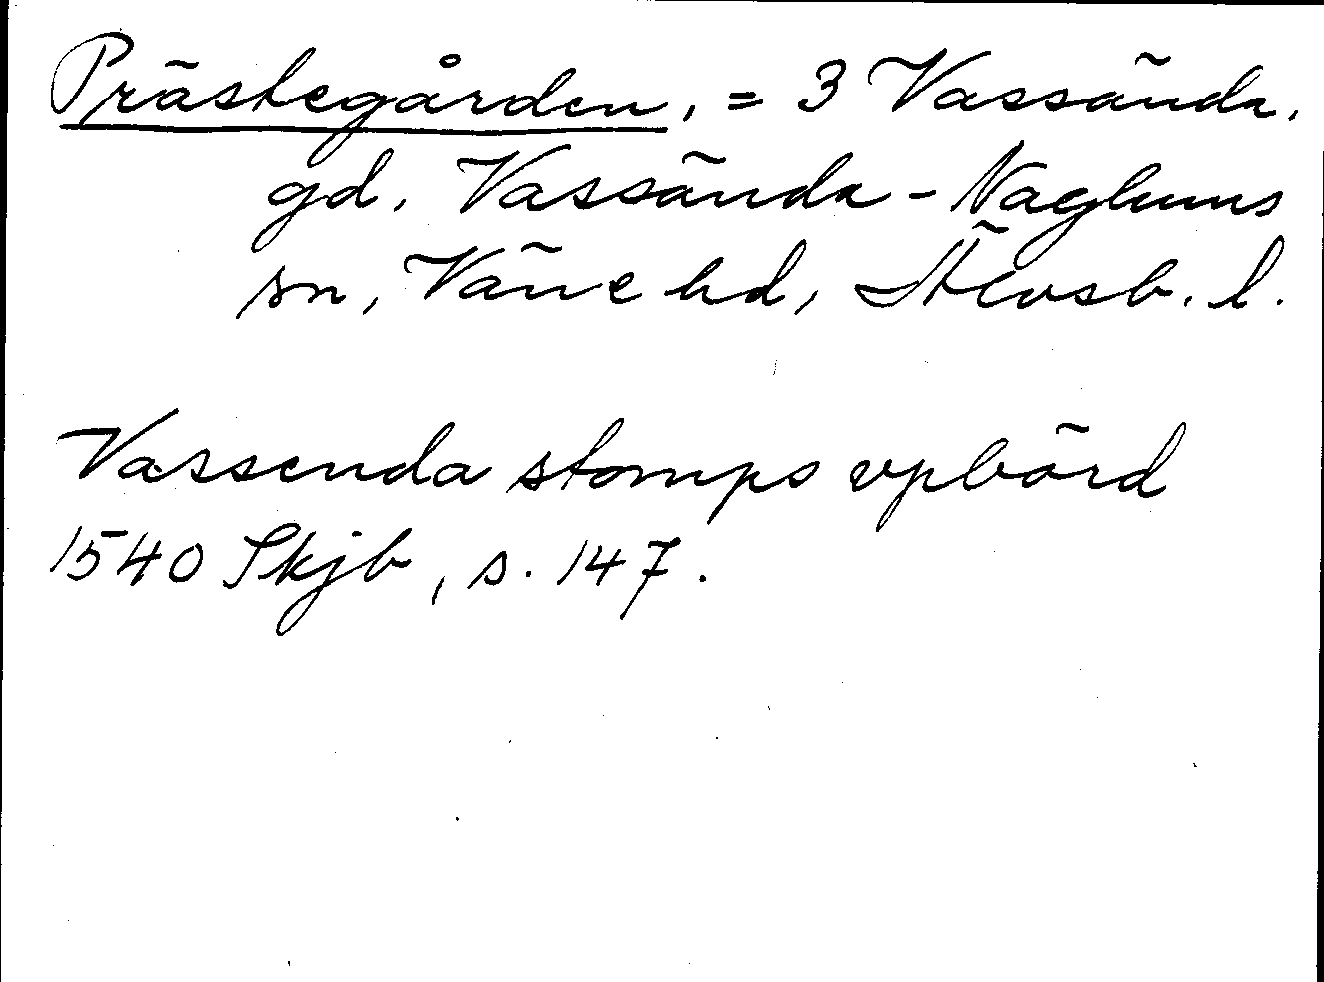 Prästegården, = 3 Vassända,
gd, Vassända-Naglums
sn, Väne hd, Älvsb. l.
Vassenda stomps vpbörd
1540 Skjb, s. 147.